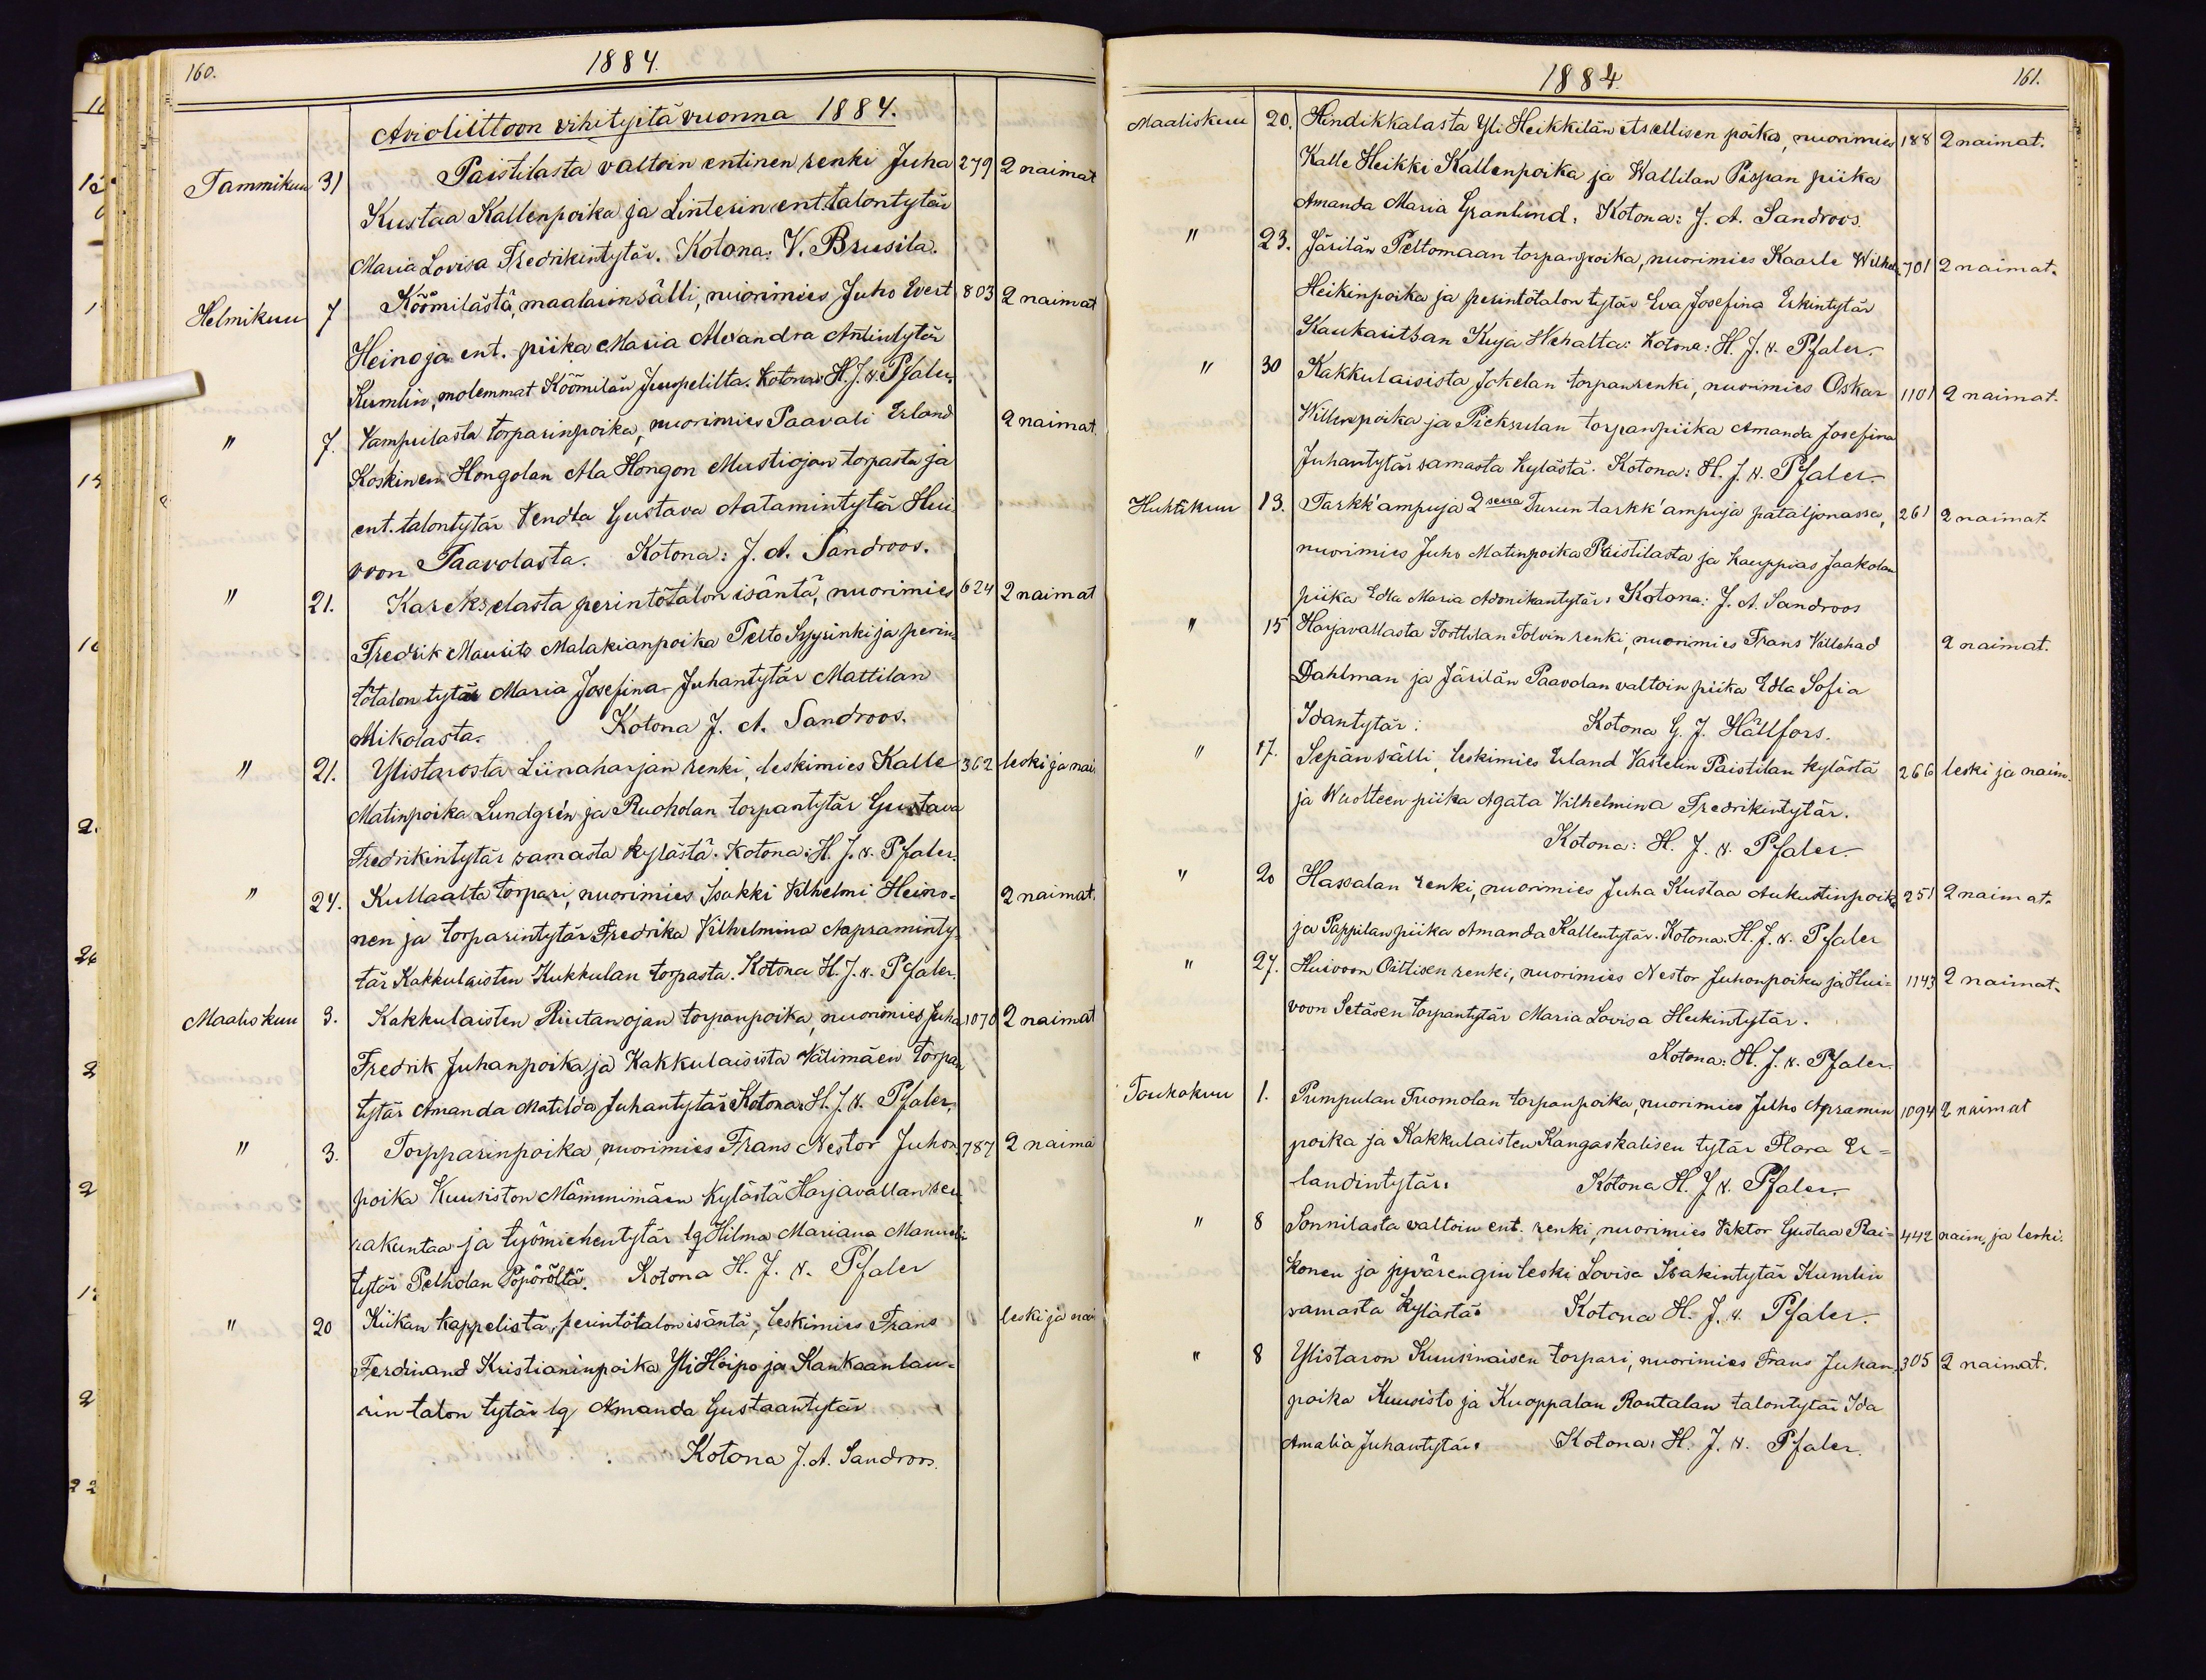 160.
1884.
Avioliittoon vihityitä vuonna 1884.
Tammikuu 31 Paistilasta valtoin entinen renki Juha 279 2 naimat
Kustaa Kallenpoika ja Linterin ent. talontytär
Maria Lovisa Fredrikintytär. Kotona: V. Brusila.
Helmikuu 7 Köömilästä, maalarinsälli, nuorimies Juho Evert 803 2 naimat
Heino ja ent. piika Maria Alexandra Antintytär
Kumlin, molemmat Köömilän Juupelilta. Kotona: H. J. v. Pfaler.
" 7. Vampulasta torparinpoika, nuorimies Paavali Erland 2 naimat.
Koskinen Hongolan Ala Hongon Mustiojan torpasta ja
ent. talontytär Vendla Gustava Aatamintytär Hui
voon Paavolasta. Kotona: J. A. Sandroos.
" 21. Karekselasta perintötalon isäntä, nuorimies 624 2 naimat
Fredrik Maurits Malakianpoika Pelto Syyrinki ja perin
tötalon tytär Maria Josefina Juhantytär Mattilan
Mikolasta. Kotona J. A. Sandroos.
" 21. Ylistarosta Liinaharjan renki, leskimies Kalle 362 leski ja nai
Matinpoika Lundgrén ja Ruoholan torpantytär Gustava
Fredrikintytär samasta kylästä. Kotona: H. J. v. Pfaler.
" 24. Kullaalta torpari, nuorimies Isakki Vilhelmi Heino= 2 naimat.
nen ja torparintytär Fredrika Vilhelmina Apraminty=
tär Kakkulaisten Kukkulan torpasta. Kotona H. J. v. Pfaler.
Maaliskuu 3. Kakkulaisten Riutanojan torpanpoika, nuorimies Juha 1070 2 naimat
Fredrik Juhanpoika ja Kakkulaisista Välimäen torpan
tytär Amanda Matilda Juhantytär Kotona: H. J. v. Pfaler.
" 3. Torpparinpoika, nuorimies Frans Nestor Juhon 787 2 naima
poika Kuusiston Mämmimäen kylästä Harjavallan seu
rakuntaa ja työmiehentytär lq Hilma Mariana Manueli
tytär Pelholan Pöpöröltä. Kotona H. J. v. Pfaler
" 20 Kiikan kappelista, perintötalon isäntä, leskimies Frans leski ja nai
Ferdinand Kristianinpoika Yli Höipo ja Kankaanlau=
rin talon tytär lq Amanda Gustaantytär
Kotona J. A. Sandroos.
1884.
161.
Maaliskuu 20. Hendikkalasta Yli Heikkilän itsellisen poika, nuorimies 188 2 naimat.
Kalle Heikki Kallenpoika ja Wallilan Pispan piika
Amanda Maria Granlund. Kotona: J. A. Sandroos.
" 23. Järilän Peltomaan torpanpoika, nuorimies Kaarle Wilhel 701 2 naimat.
Heikinpoika ja perintötalon tytär Eva Josefina Erkintytär
Kaukaritsan Kuja Wehalta: Kotona: H. J. v. Pfaler.
" 30 Kakkulaisista Jokelan torpanrenki, nuorimies Oskar 1101 2 naimat.
Villenpoika ja Pieksulan torpanpiika Amanda Josefina
Juhantytär samasta kylästä. Kotona: H. J. v. Pfaler.
Huhtikuu 13. Tarkk'ampuja 2sessa Turun tarkk'ampuja pataljonassa, 261 2 naimat.
nuorimies Juho Matinpoika Paistilasta ja kauppias Jaakolan
piika Edla Maria Adonikantytär: Kotona: J. A. Sandroos
" 15 Harjavallasta Torttilan Tolvin renki, nuorimies Frans Villehad 2 naimat.
Dahlman ja Järilän Paavolan valtoin piika Edla Sofia
Idantytär: Kotona G. J. Hällfors.
" 17. Sepänsälli, leskimies Erland Vastelin Paistilan kylästä 266 leski ja naim.
ja Wuolteen piika Agata Vilhelmina Fredrikintytär.
Kotona: H. J. v. Pfaler.
" 20 Hassalan renki, nuorimies Juha Kustaa Aukustinpoika 251 2 naimat.
ja Pappilan piika Amanda Kallentytär. Kotona: H. J. v. Pfaler
" 27. Huivoon Oittisen renki, nuorimies Nestor Juhonpoika ja Hui= 1143 2 naimat.
voon Setäsen torpantytär Maria Lovisa Heikintytär.
Kotona: H. J. v. Pfaler.
Toukokuu 1. Pumpulan Tuomolan torpanpoika, nuorimies Juho Apramin 1094 2 naimat
poika ja Kakkulaisten Kangaskalisen tytär Flora Er=
landintytär. Kotona H. J. v. Pfaler.
" 8 Sonnilasta valtoin ent. renki, nuorimies Viktor Gustaa Rai= 442 naim. ja leski.
konen ja jyvärengin leski Lovisa Isakintytär Kumlin
samasta kylästä. Kotona H. J. v. Pfaler.
" 8 Ylistaron Kuusinaisen torpari, nuorimies Frans Juhan 305 2 naimat.
poika Kuusisto ja Kuoppalan Rantalan talontytär Ida
Amalia Juhantytär. Kotona: H. J. v. Pfaler.